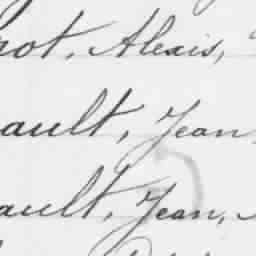 rot, Alexis,
ault, Jean
ault, Jean,